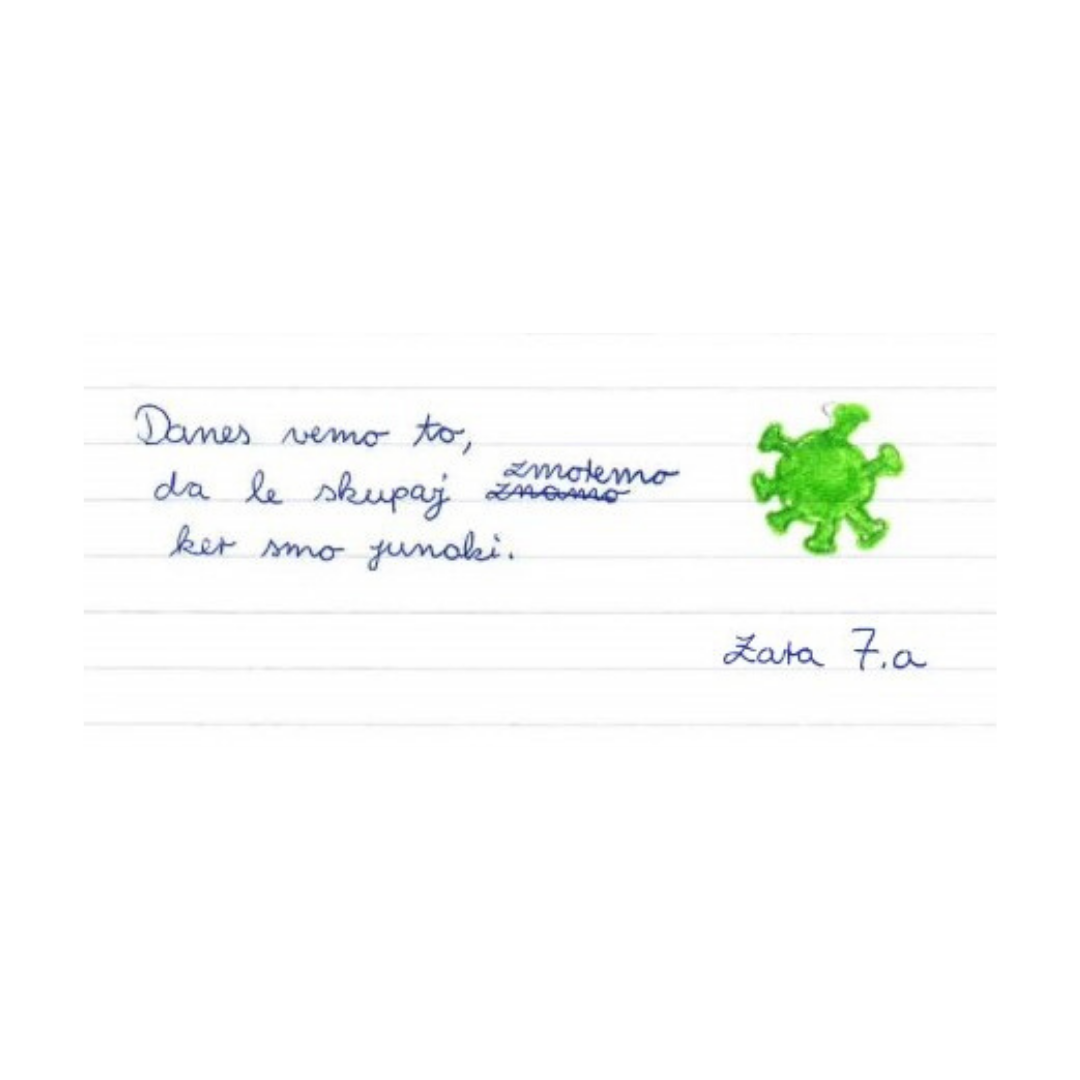 Danes vemo to,
da le skupaj zmoremo znamo
ker smo junaki.
Zara 7.a